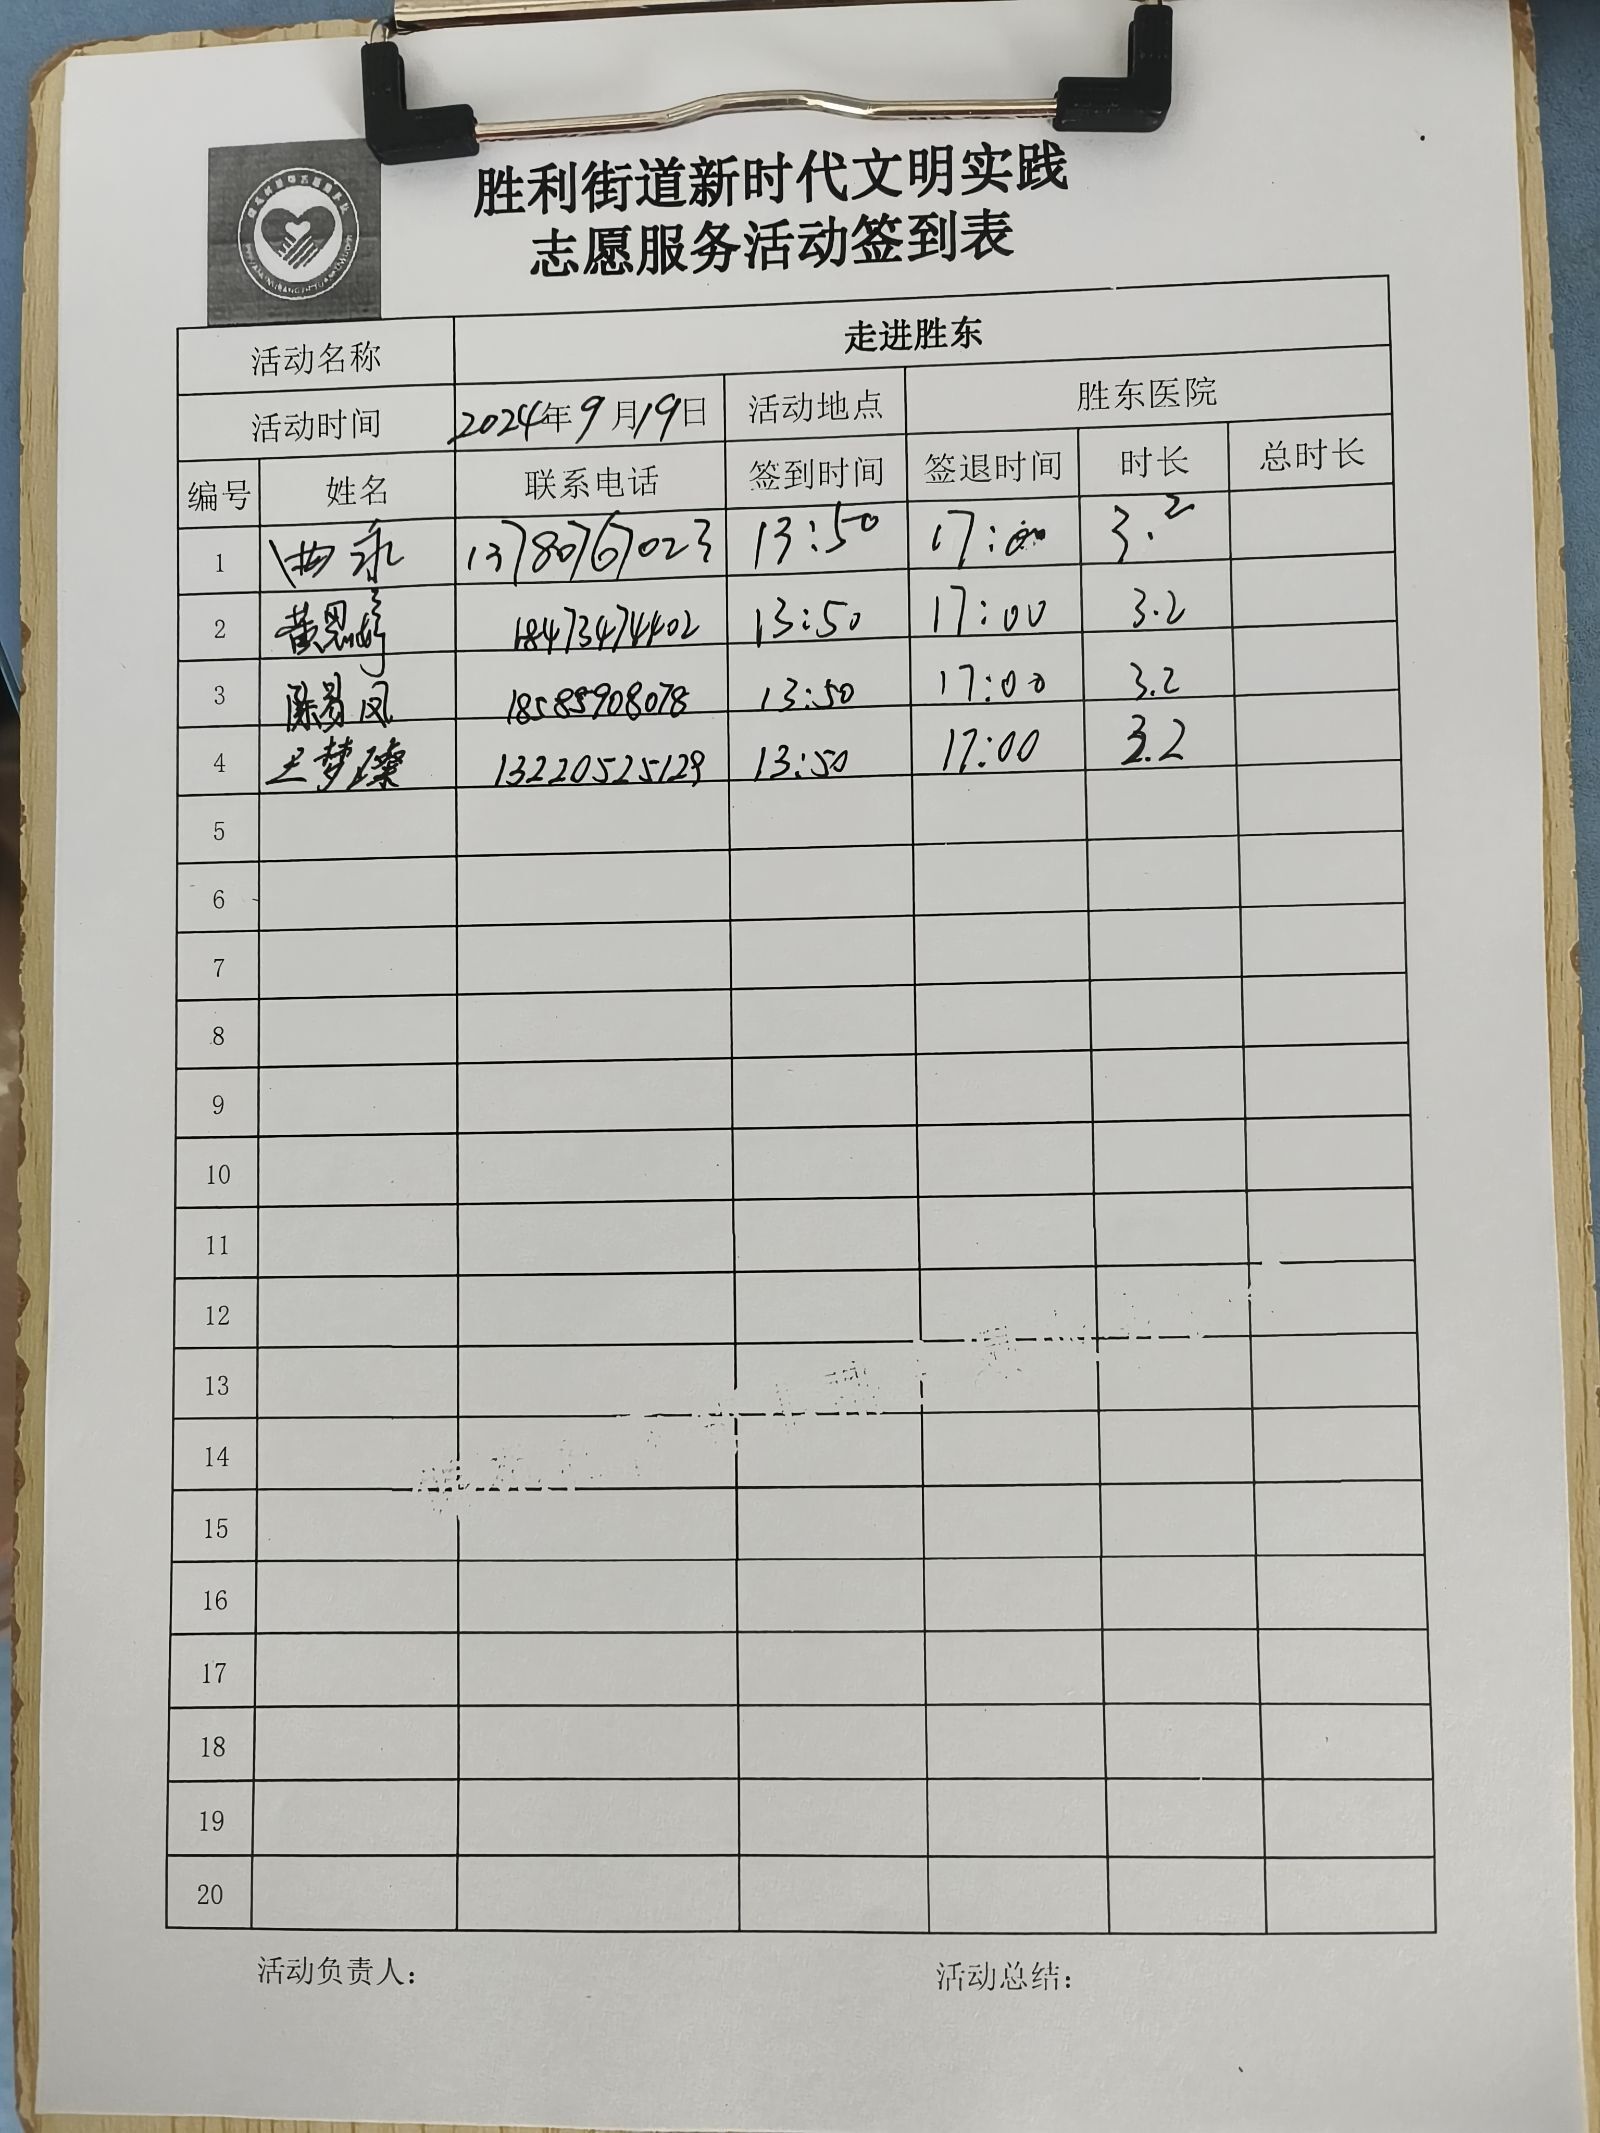 胜利街道新时代文明实践
志愿服务活动签到表
活动名称 走进胜东
活动时间 2024年9月19日 活动地点 胜东医院
编号 姓名 联系电话 签到时间 签退时间 时长 总时长
1 13780767023 13:50 17:00 3.2
2 黄思婷 18473474402 13:50 17:00 3.2
3 陈易凤 18585908078 13:50 17:00 3.2
4 王梦璨 13220525129 13:50 17:00 3.2
5
6
7
8
9
10
11
12
13
14
15
16
17
18
19
20
活动负责人： 活动总结：